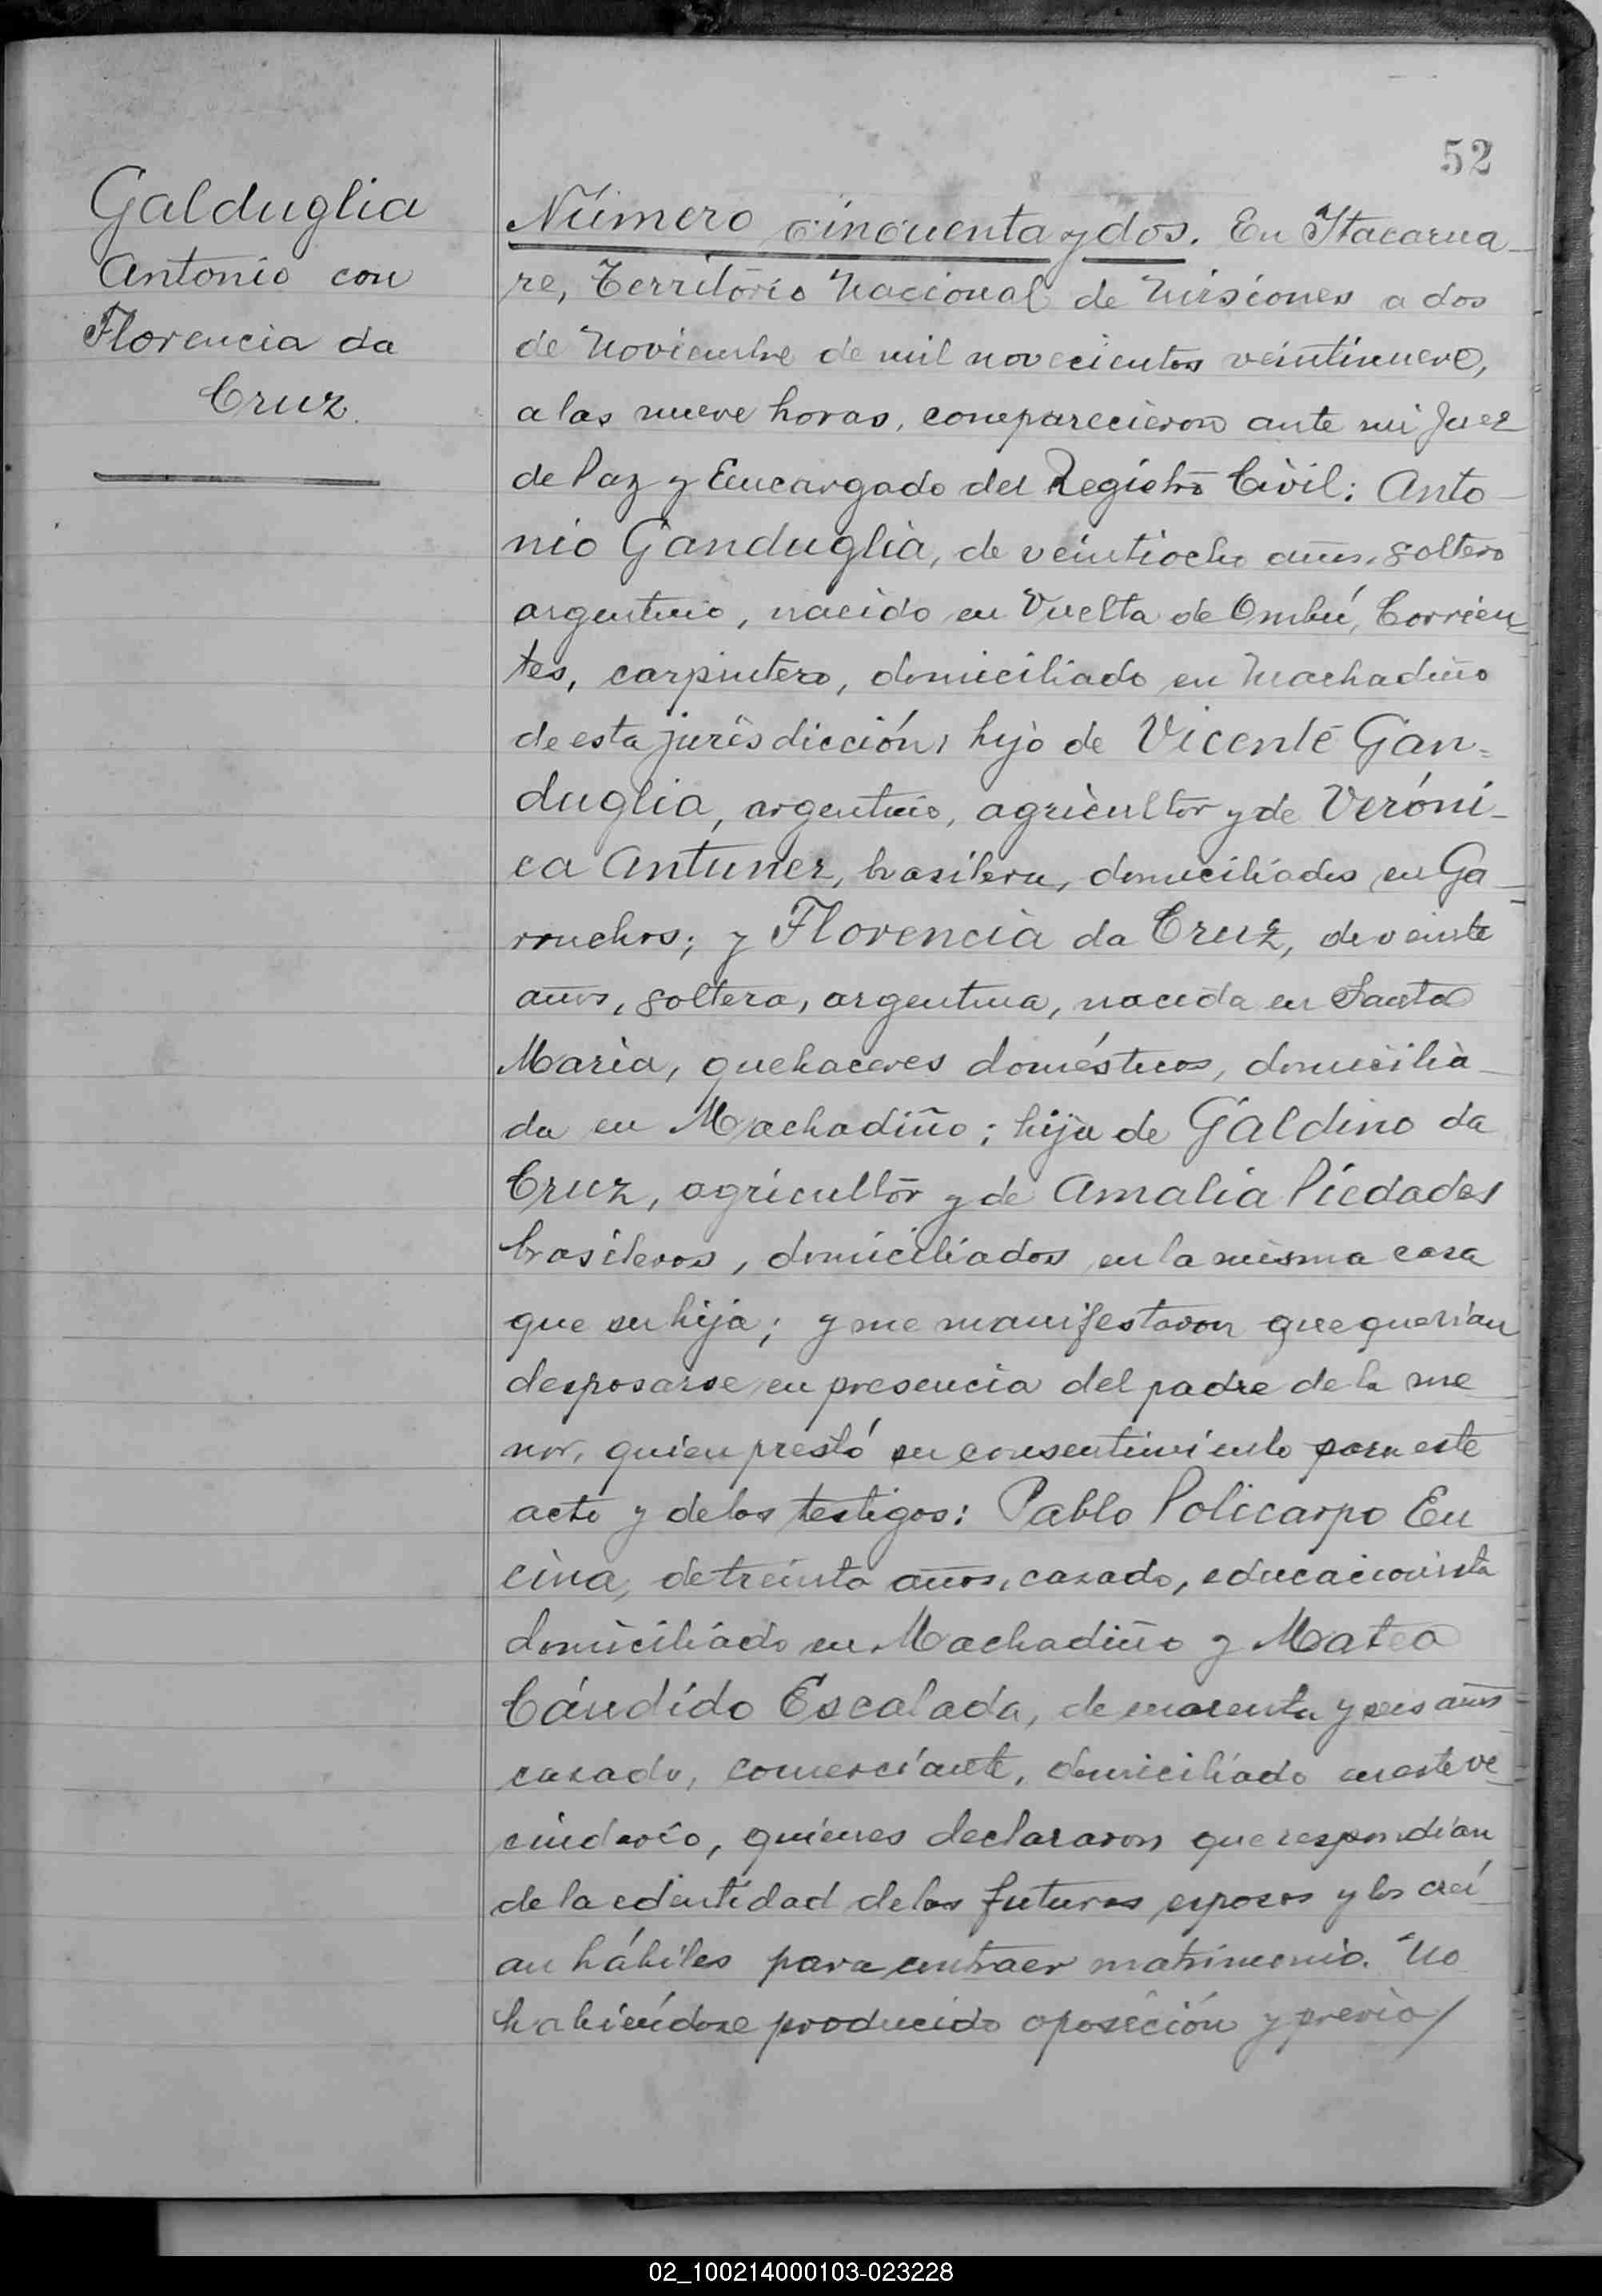 52
Galduglia
Antonio con
Florencia da
Cruz.
Número cincuenta y dos. En Itacarua-
re, Territorio Nacional de Misiones a dos
de Noviembre de mil novecientos veintinueve,
a las nueve horas, comparecieron ante mi Juez
de Paz y Encargado del Registro Civil: Anto-
nio Ganduglia, de veintiocho años, soltero
argentino, nacido en Vuelta de Ombú, Corrien-
tes, carpintero, domiciliado en Machadiño
de esta jurisdicción, hijo de Vicente Gan=
duglia, argentino, agricultor y de Veróni-
ca Antunez, brasilera, domiciliados en Ga-
rruchos; y Florencia da Cruz, de veinte
años, soltera, argentina, nacida en Santa
Maria, quehaceres domésticos, domicilia-
da en Machadiño; hija de Galdino da
Cruz, agricultor y de Amalia Piedades
brasileros, domiciliados en la misma casa
que su hija; y me manifestaron que querian
desposarse en presencia del padre de la me
nor, quien prestó su consentimiento para este
acto y de los testigos: Pablo Policarpo En
cina, de treinta años, casado, educacionista
domiciliado en Machadiño y Mateo
Cándido Escalada, de cuarenta y seis años
casado, comerciante, domiciliado en este ve-
cindario, quienes declararon que respondian
de la edentidad de los futuros esposos y los creí
an hábiles para contraer matrimonio. No
habiéndose producido oposición y previo/
02_100214000103-023228